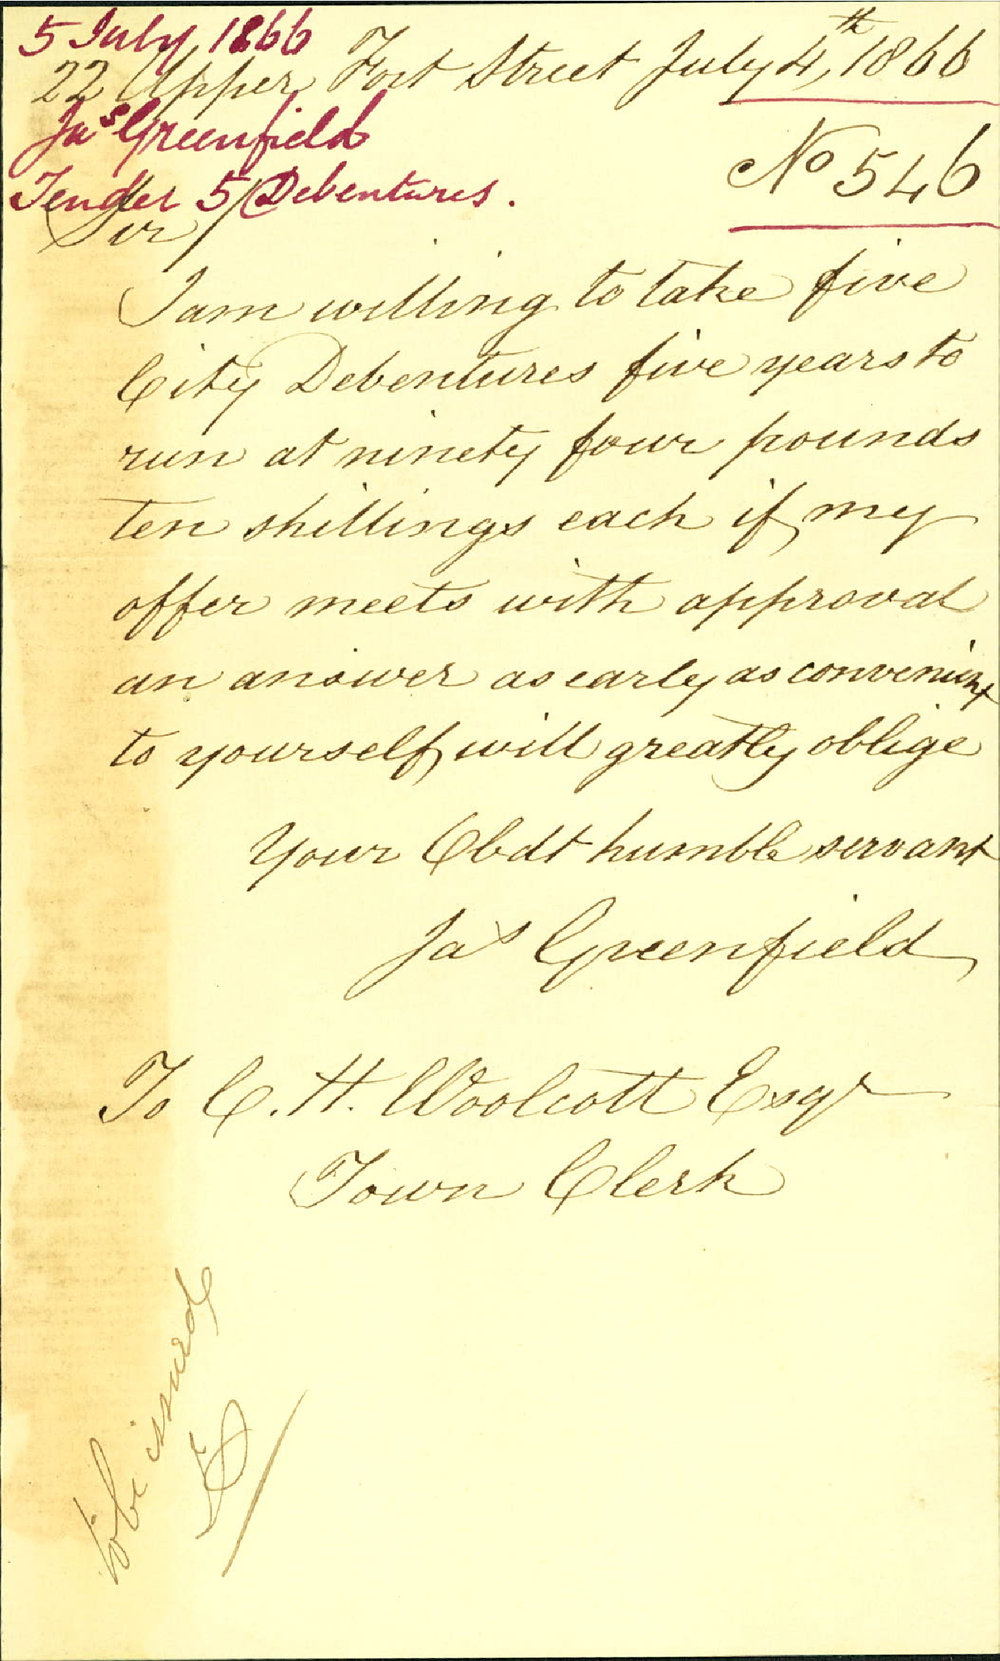 5 July, 1866
22 Upper Fort Street July 4, th 1866
Jas Greenfield
No 546
Tender 5 Debentures.
Sir/
I am willing to take five
City Debentures five years to
run at ninety four pounds
ten shillings each if my
offer meets with approval
an answer as early as convenient
to yourself, will greatly oblige
Your Obdt humble servant
Jas Greenfield
To C. H. Woolcott Esqr
Town Clerk
to be issued